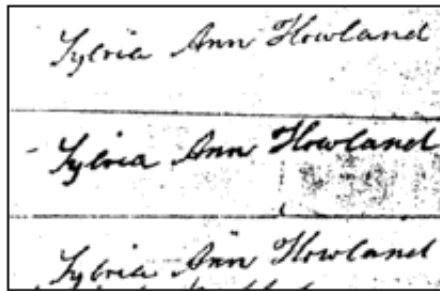 Sylvia Ann Howland
Sylvia Ann Howland
Sylvia Ann Howland